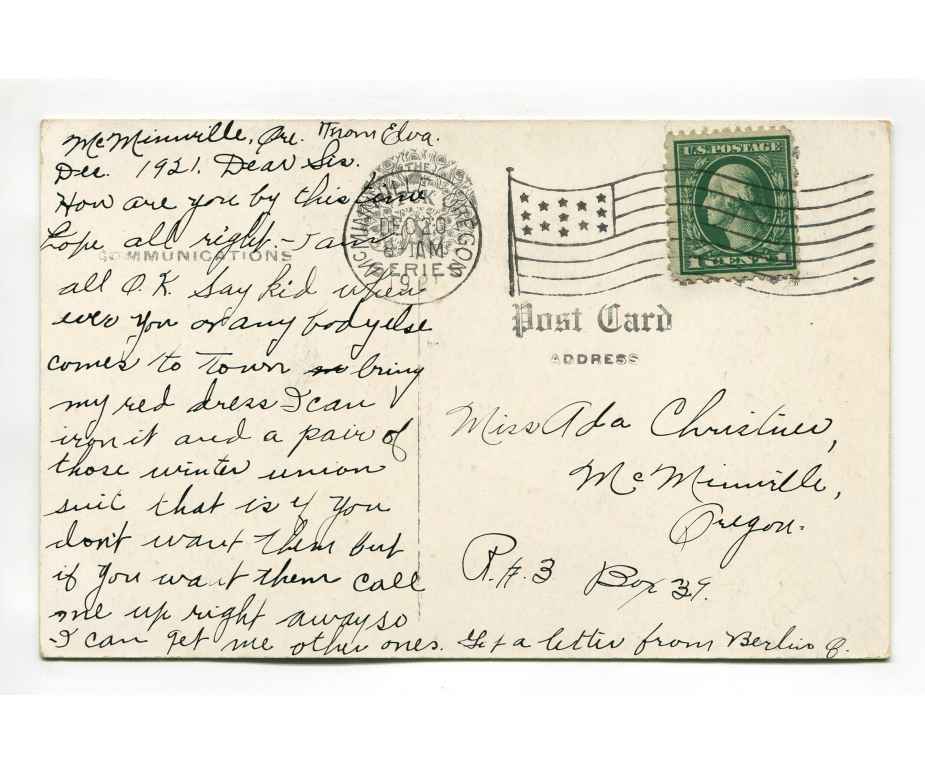 McMinnville, Ore. From Elva.
Dec. 1921. Dear Sis.
How are you by this time
hope all right - I am
COMMUNICATIONS
all O.K. Say kid when
ever you or any body else
comes to town bring
my red dress I can
iron it and a pair of
those winter union
suit that is if you
don't want them but
if you want them call
me up right away so
I can get me other ones. Got a letter from Berlin
THE
McMINNVILLE OREGON
DEC 20
8 AM
SERIES
1921
U.S. POSTAGE
1 CENT 1
Post Card
ADDRESS
Miss Ada Christner,
McMinnville,
Oregon.
R.#.3 Box 39.